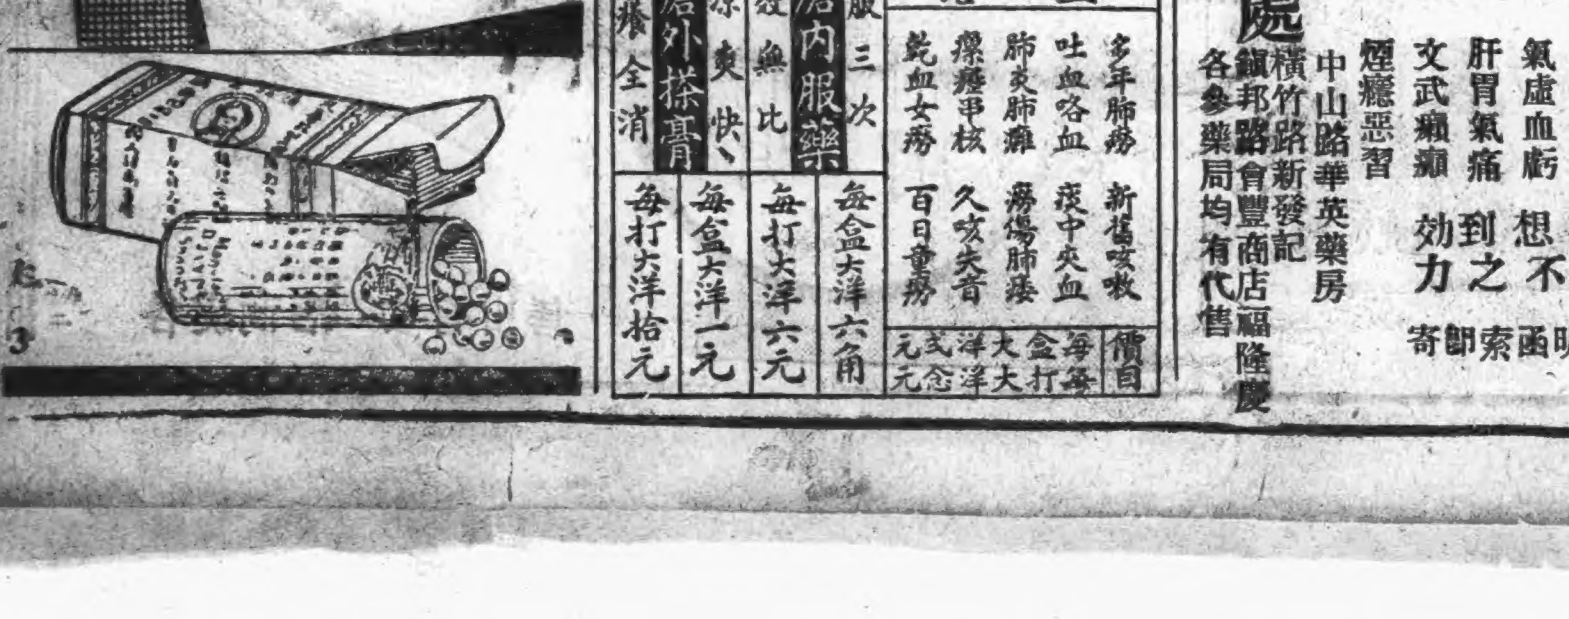 氣虛血虧 想不
肝胃氣痛 到之
文武癲癇 効力
煙癮惡習
明函索卽寄
處
中山路華英藥房
橫竹路新發記
鎭邦路會豐商店福隆慶
各參藥局均有代售
多年肺癆 新舊咳嗽
吐血咯血 痰中夾血
肺炎肺癰 癆傷肺痿
瘰癧串核 久咳失音
乾血女癆 百日童癆
價目
每盒大洋弍元
每打大洋念元
服三次
內服藥
無比
爽快
外搽膏
全消
每盒大洋六角
每打大洋六元
每盒大洋一元
每打大洋拾元